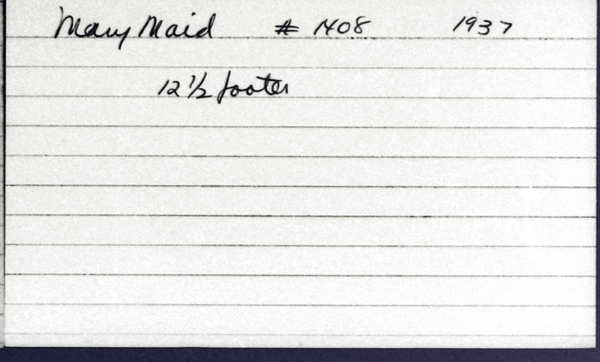 Mary Maid # 1408 1937
12 1/2 footer